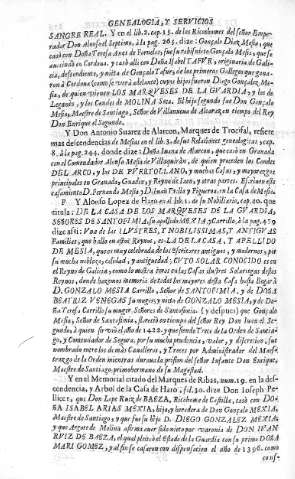 GENEALOGIA, Y SERVICIOS
SANGRE REAL. Y en el lib. 2. cap. 15. de los Ricoshomes del señor Emperador
Don Alonso el Septimo, à la pag. 265. dize: Gonçalo Diaz Mesia, que
casò con Doña Teresa Anes de Parades, fue su visnieto Gonçalo Mesia, que se
avezindò en Cordova. y casò alli con Doña Isabel TAFUR, originaria de Galicia,
descendiente, y nieta de Gonçalo Tafur, de los primeros Gallegos que ganaron
à Cordova (como se verà adelante) cuyos hijos fueron Diego Gonçalez Mesia,
de quien vienen LOS MARQUESES DE LA GUARDIA, y los de
Leganès, y los Condes de MOLINA &c. El hijo segundo fue Don Gonçalo
Mesia, Maestre de Santiago, Señor de Villanueva de Alcaraz, en tiempo del Rey
Don Enrique el Segundo.
Y Don Antonio Suarez de Alarcon, Marques de Trocifal, refiere
mas descendencias de Mesias en el lib. 3. de sus Relaciones genealogicas, cap.
8. à la pag. 244. donde dize: Doña Juana de Alarcon, que casò en Granada
con el Comendador Alonso Mesia de Villaquiràn, de quien proceden los Condes
DEL ARCO, y los DE PUERTOLLANO, y muchas Casas, y mayorazgos
principales en Granada, Guadix, y Reyno de Iaen, y otras partes.
D. Fernando de Mesia, y D. Ioseph Trillo y Figueroa, en la Casa de Mesia.
Y Alonso Lopez de Haro en el lib. 1. de su Nobiliario, cap. 20. que
titula: DE LA CASA DE LOS MARQUESES DE LA GUARDIA,
SEÑORES DE SANTOFIMIA, su apellido MESIA Carrillo, à la pag. 470
dize assi: Una de las ILUSTRES, Y NOBILISSIMAS, Y ANTIGUAS
Familias, que hallo en estos Reynos, es LA DE LA CASA, Y APELLIDO
DE MESIA, que es muy celebrada de los Escritores antiguos, y modernos, por
su mucha nobleza, calidad, y antiguedad; CUYO SOLAR CONOCIDO es
el Reyno de Galicia, como lo muestra
Reynos, donde
D. GONZALO MESIA Carrillo, Señor de SANTOFIMIA, y de DOÑA
BEATRIZ VENEGAS su muger, y visto de GONZALO MESIA, y de Doña
Teresa Carrillo su muger, Señores de Santofimia. (y despues) que Gonçalo
Mesia, Señor de Santofimia, floreciò en tiempo del señor Rey Don Iuan el Segundo,
à quien sirviò el año de 1422. y que siendo Treze de la Orden de Santiago,
y Comendador de Segura, por su mucha prudencia, valor, y discrecion, fue
nombrado entre los demàs Cavalleros, y Trezes por Administrador del Maestrazgo
de la Orden mientras durava la prision del señor Infante Don Enrique,
Maestre de Santiago primohermano de su Magestad.
Y en el Memorial citado del Marques de Ribas, num. 19. en la descendencia,
y Arbol de la Casa de Haro, fol. 30. dize Don Ioseph Pellicer,
que Don Lope Ruiz de BAEZA, Ricohome de Castilla, casò con DOÑA
ISABEL ARIAS MEXIA, hija y heredera de Don Gonçalo MEXIA,
Maestre de Santiago, y que fue su hijo D. DIEGO GONZALEZ MEXIA
y que Argote de Molina afirma aver sido nieto por varonia de DON IUAN
RUIZ DE BAEZA, el qual pleiteò el Estado de la Guardia con su prima DOÑA
MARI GOMEZ, y al fin se casaron con dispensacion el año de 1396. como